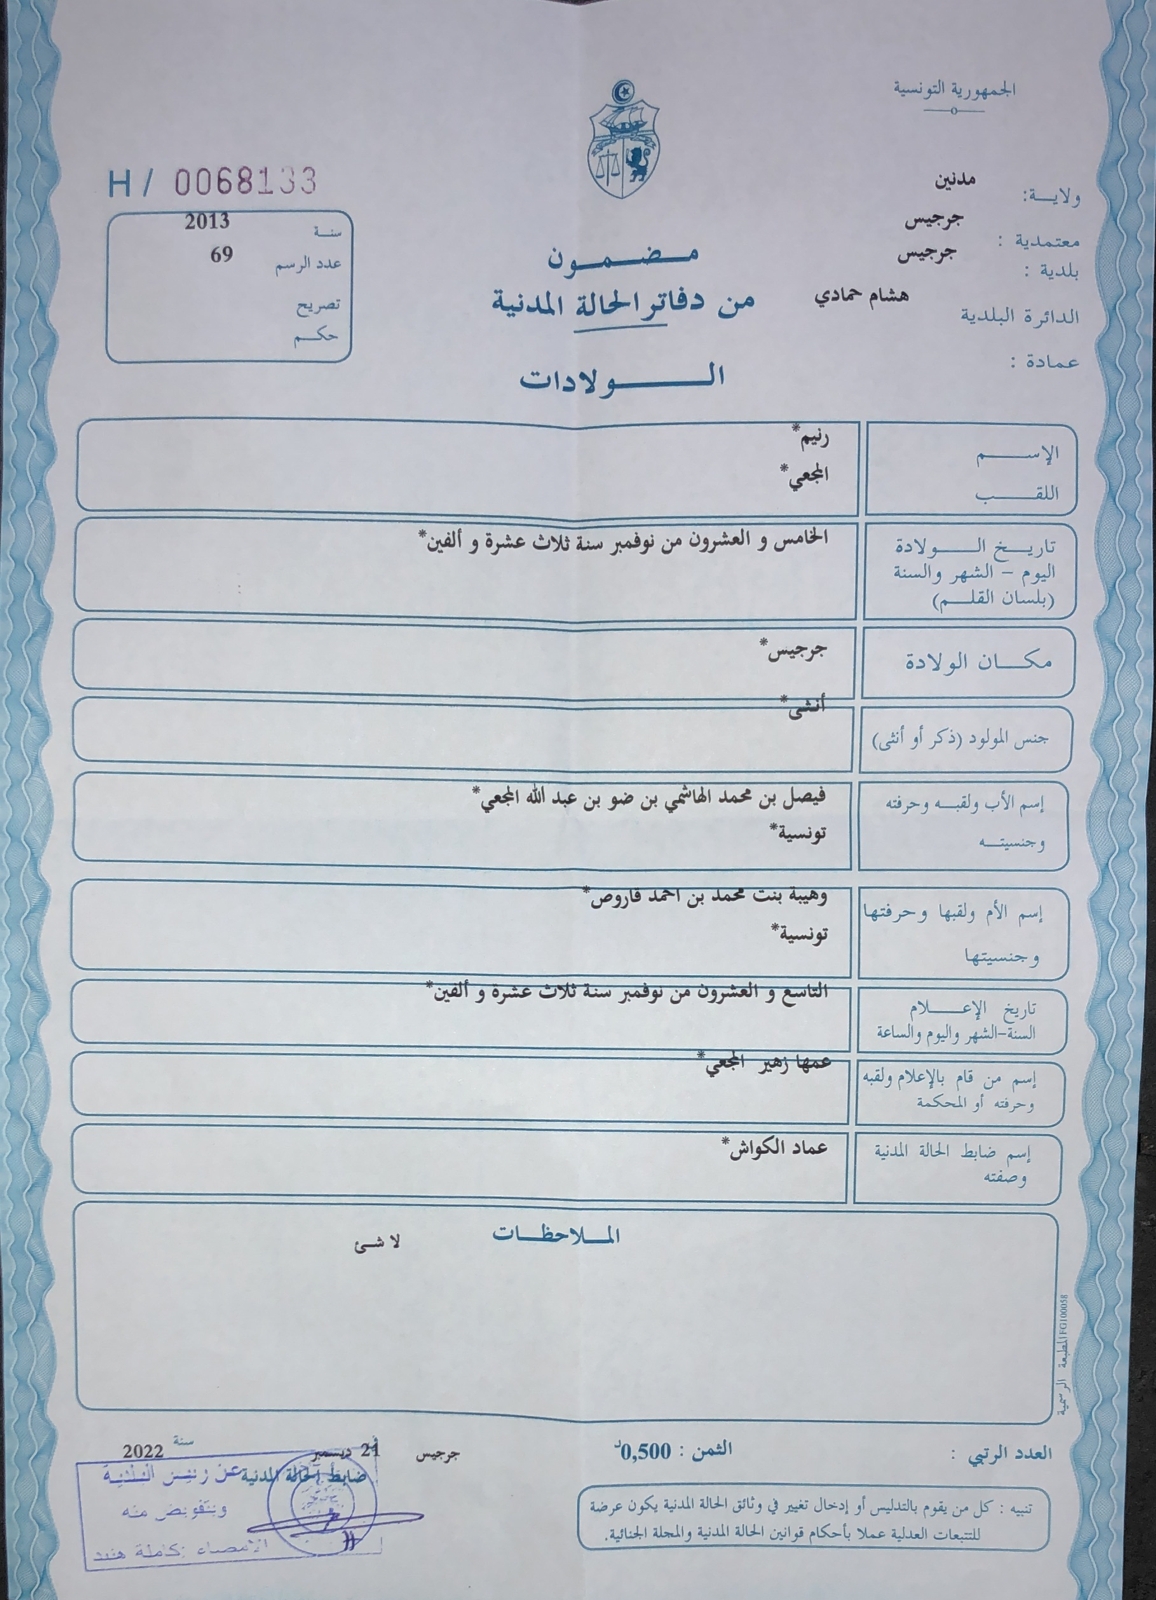 الجمهورية التونسية
ولاية: مدنين
معتمدية : جرجيس
بلدية : جرجيس
الدائرة البلدية هشام حمادي
عمادة :
H / 0068133
سنة 2013
عدد الرسم 69
تصريح
حكم
مضمون
من دفاتر الحالة المدنية
الولادات
الإسم رنيم*
اللقب المجعي*
تاريخ الولادة الخامس و العشرون من نوفمبر سنة ثلاث عشرة و ألفين*
اليوم – الشهر والسنة
(بلسان القلم)
مكان الولادة جرجيس*
جنس المولود (ذكر أو أنثى) أنثى*
إسم الأب ولقبه وحرفته فيصل بن محمد الهاشمي بن ضو بن عبد الله المجعي*
وجنسيته تونسية*
إسم الأم ولقبها وحرفتها وهيبة بنت محمد بن احمد قاروص*
وجنسيتها تونسية*
تاريخ الإعلام التاسع و العشرون من نوفمبر سنة ثلاث عشرة و ألفين*
السنة-الشهر واليوم والساعة
إسم من قام بالإعلام ولقبه عمها زهير المجعي*
وحرفته أو المحكمة
إسم ضابط الحالة المدنية عماد الكواش*
وصفته
الملاحظات
لا شئ
المطبعة الرسمية FG100058
العدد الرتبي :
الثمن : 0,500د
جرجيس 21 ديسمبر سنة 2022
ضابط الحالة المدنية
عن رئيس البلدية
وبتفويض منه
الامضاء : كاملة هنيد
تنبيه : كل من يقوم بالتدليس أو إدخال تغيير في وثائق الحالة المدنية يكون عرضة
للتتبعات العدلية عملا بأحكام قوانين الحالة المدنية والمجلة الجنائية.